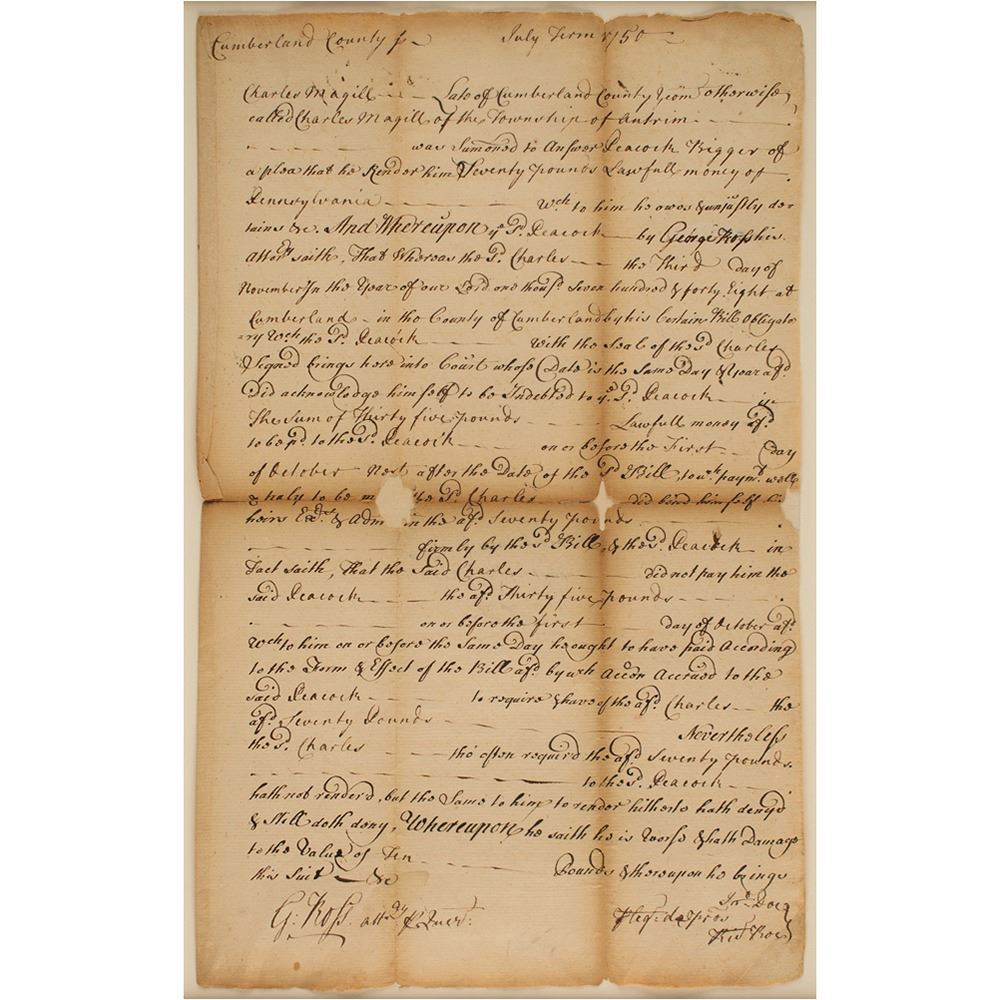 Cumberland County ss July Term 1750
Charles Magill Late of Cumberland County Yeom otherwise
called Charles Magill of the Township of Antrim
was Sumoned to Answer Peacock Bigger of
a plea that he Render him Seventy pounds Lawfull money of
Pennsylvania wch to him he owes & unjustly de=
tains &c. And Whereupon ye sd. Peacock by George Ross his
Attory saith, That Whereas the sd. Charles the Third day of
November In the Year of our Lord one thousd. Seven hundred & forty Eight at
Cumberland in the County of Cumberland by his Certain Bill obligato
=ry wch the sd Peacock with the Seal of the sd Charles
Signed brings here into Court whose Date is the Same Day & Year afd
Did acknowledge himself to be Indebted to ye. sd. Peacock in
The Sum of Thirty five pounds Lawfull money afd.
to be pd. to the sd. Peacock on or before the First day
of October Next after the Date of the sd Bill, to wch. paymt. well
& truly to be m the sd. Charles did bind himself
heirs Exrs & Adm in the afd. Seventy pounds
firmly by the sd Bill, & the sd. Peacock in
Fact saith, That the said Charles did not pay him the
said Peacock the afd. Thirty five pounds
on or before the first day of October afd.
wch to him on or before the Same Day he ought to have paid According
to the Form & Effect of the Bill afd. by wch Accon Accrued to the
said Peacock to require & have of the afd. Charles the
afd. Seventy Pounds Nevertheless
the sd. Charles tho' often requir'd the afd Seventy pounds.
to the sd. Peacock
hath not render'd, but the Same to him to render hitherto hath deny'd
& Still doth deny, Whereupon he saith he is Worse & hath Damage
to the Value of Ten Pounds & thereupon he brings
this Suit &c
Jno. Doe
G: Ross atty p Quer: Pleg: de pros
Ricd Roe